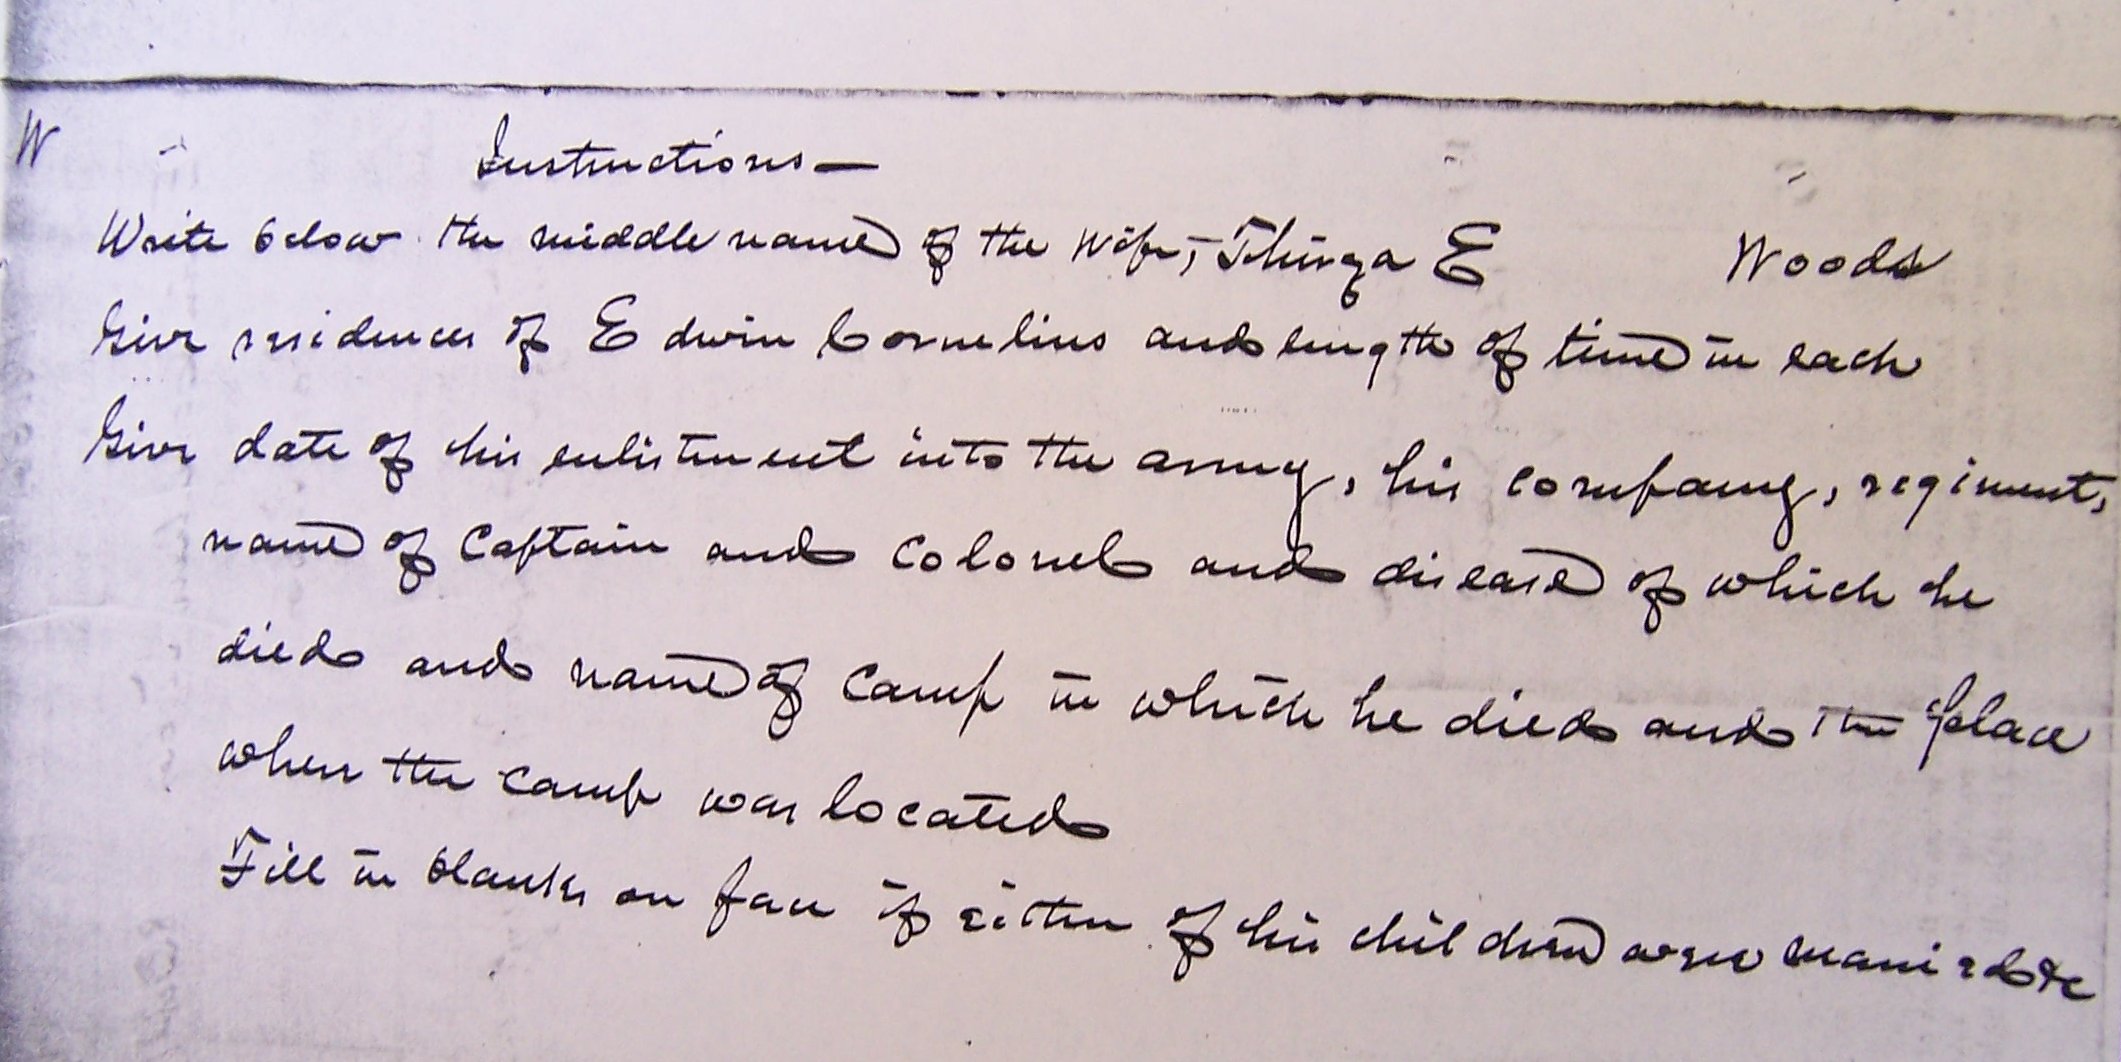 W
Instructions —
Write below the middle name of the wife, - Thirza E Woods
Give residences of Edwin Cornelius and length of time in each
Give date of his enlistment into the army, his company, regiment,
name of Captain and Colonel and disease of which he
died and name of Camp in which he died and the place
where the camp was located
Fill in blanks on face if either of his children were married &c